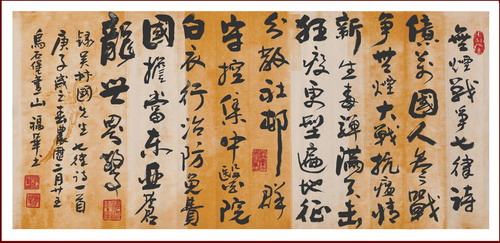 無煙戰事七律詩
億萬國人參戰
爭無煙大戰抗瘟情
新生毒彈滿天出
狂疫更型遍地征
分散社邨群
守控集中醫院
白衣行治防免費
國擔當東亞蒼
龍世界驚
錄吳村國先生七律詩一首
庚子歲之春農曆二月廿五
烏石堡書山福華书